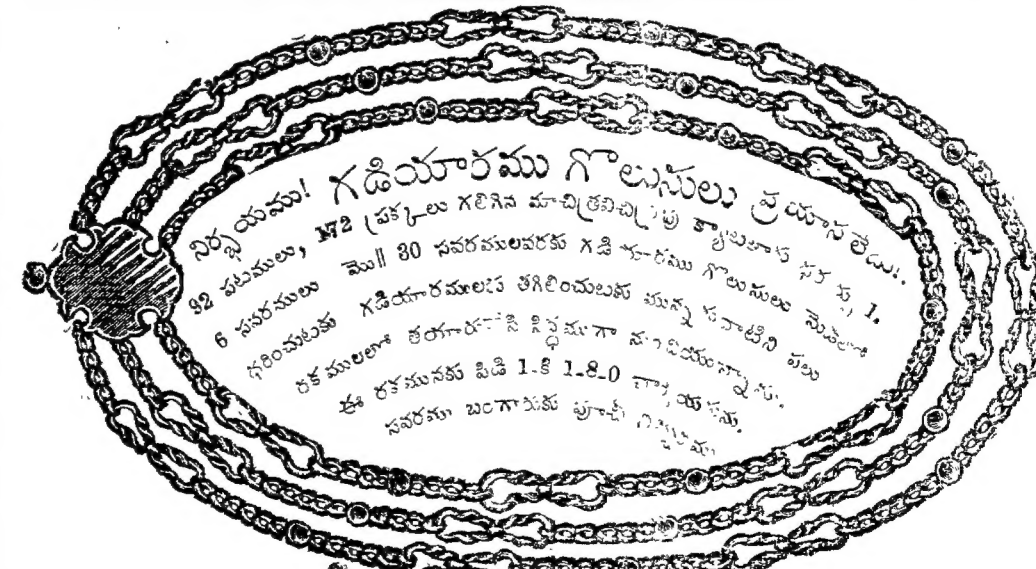 నిర్భయము! గడియారము గొలుసులు ప్రయాసలేదు!
32 పటములు, 172 ప్రక్కలు గలిగిన మాచిత్రవిచిత్రపు క్యాటలాగు 1.
6 సవరనులు మొ॥ 30 సవరములవరకు గడియారము గొలుసులు మెడలో
ధరించుటకు గడియారములకు తగిలించుటకు మున్న పలు
రకములలో సిద్ధముగా
ఈ రకమునకు పిడి 1-కి 1-8-0
సవరము బంగారుకు పూచీ